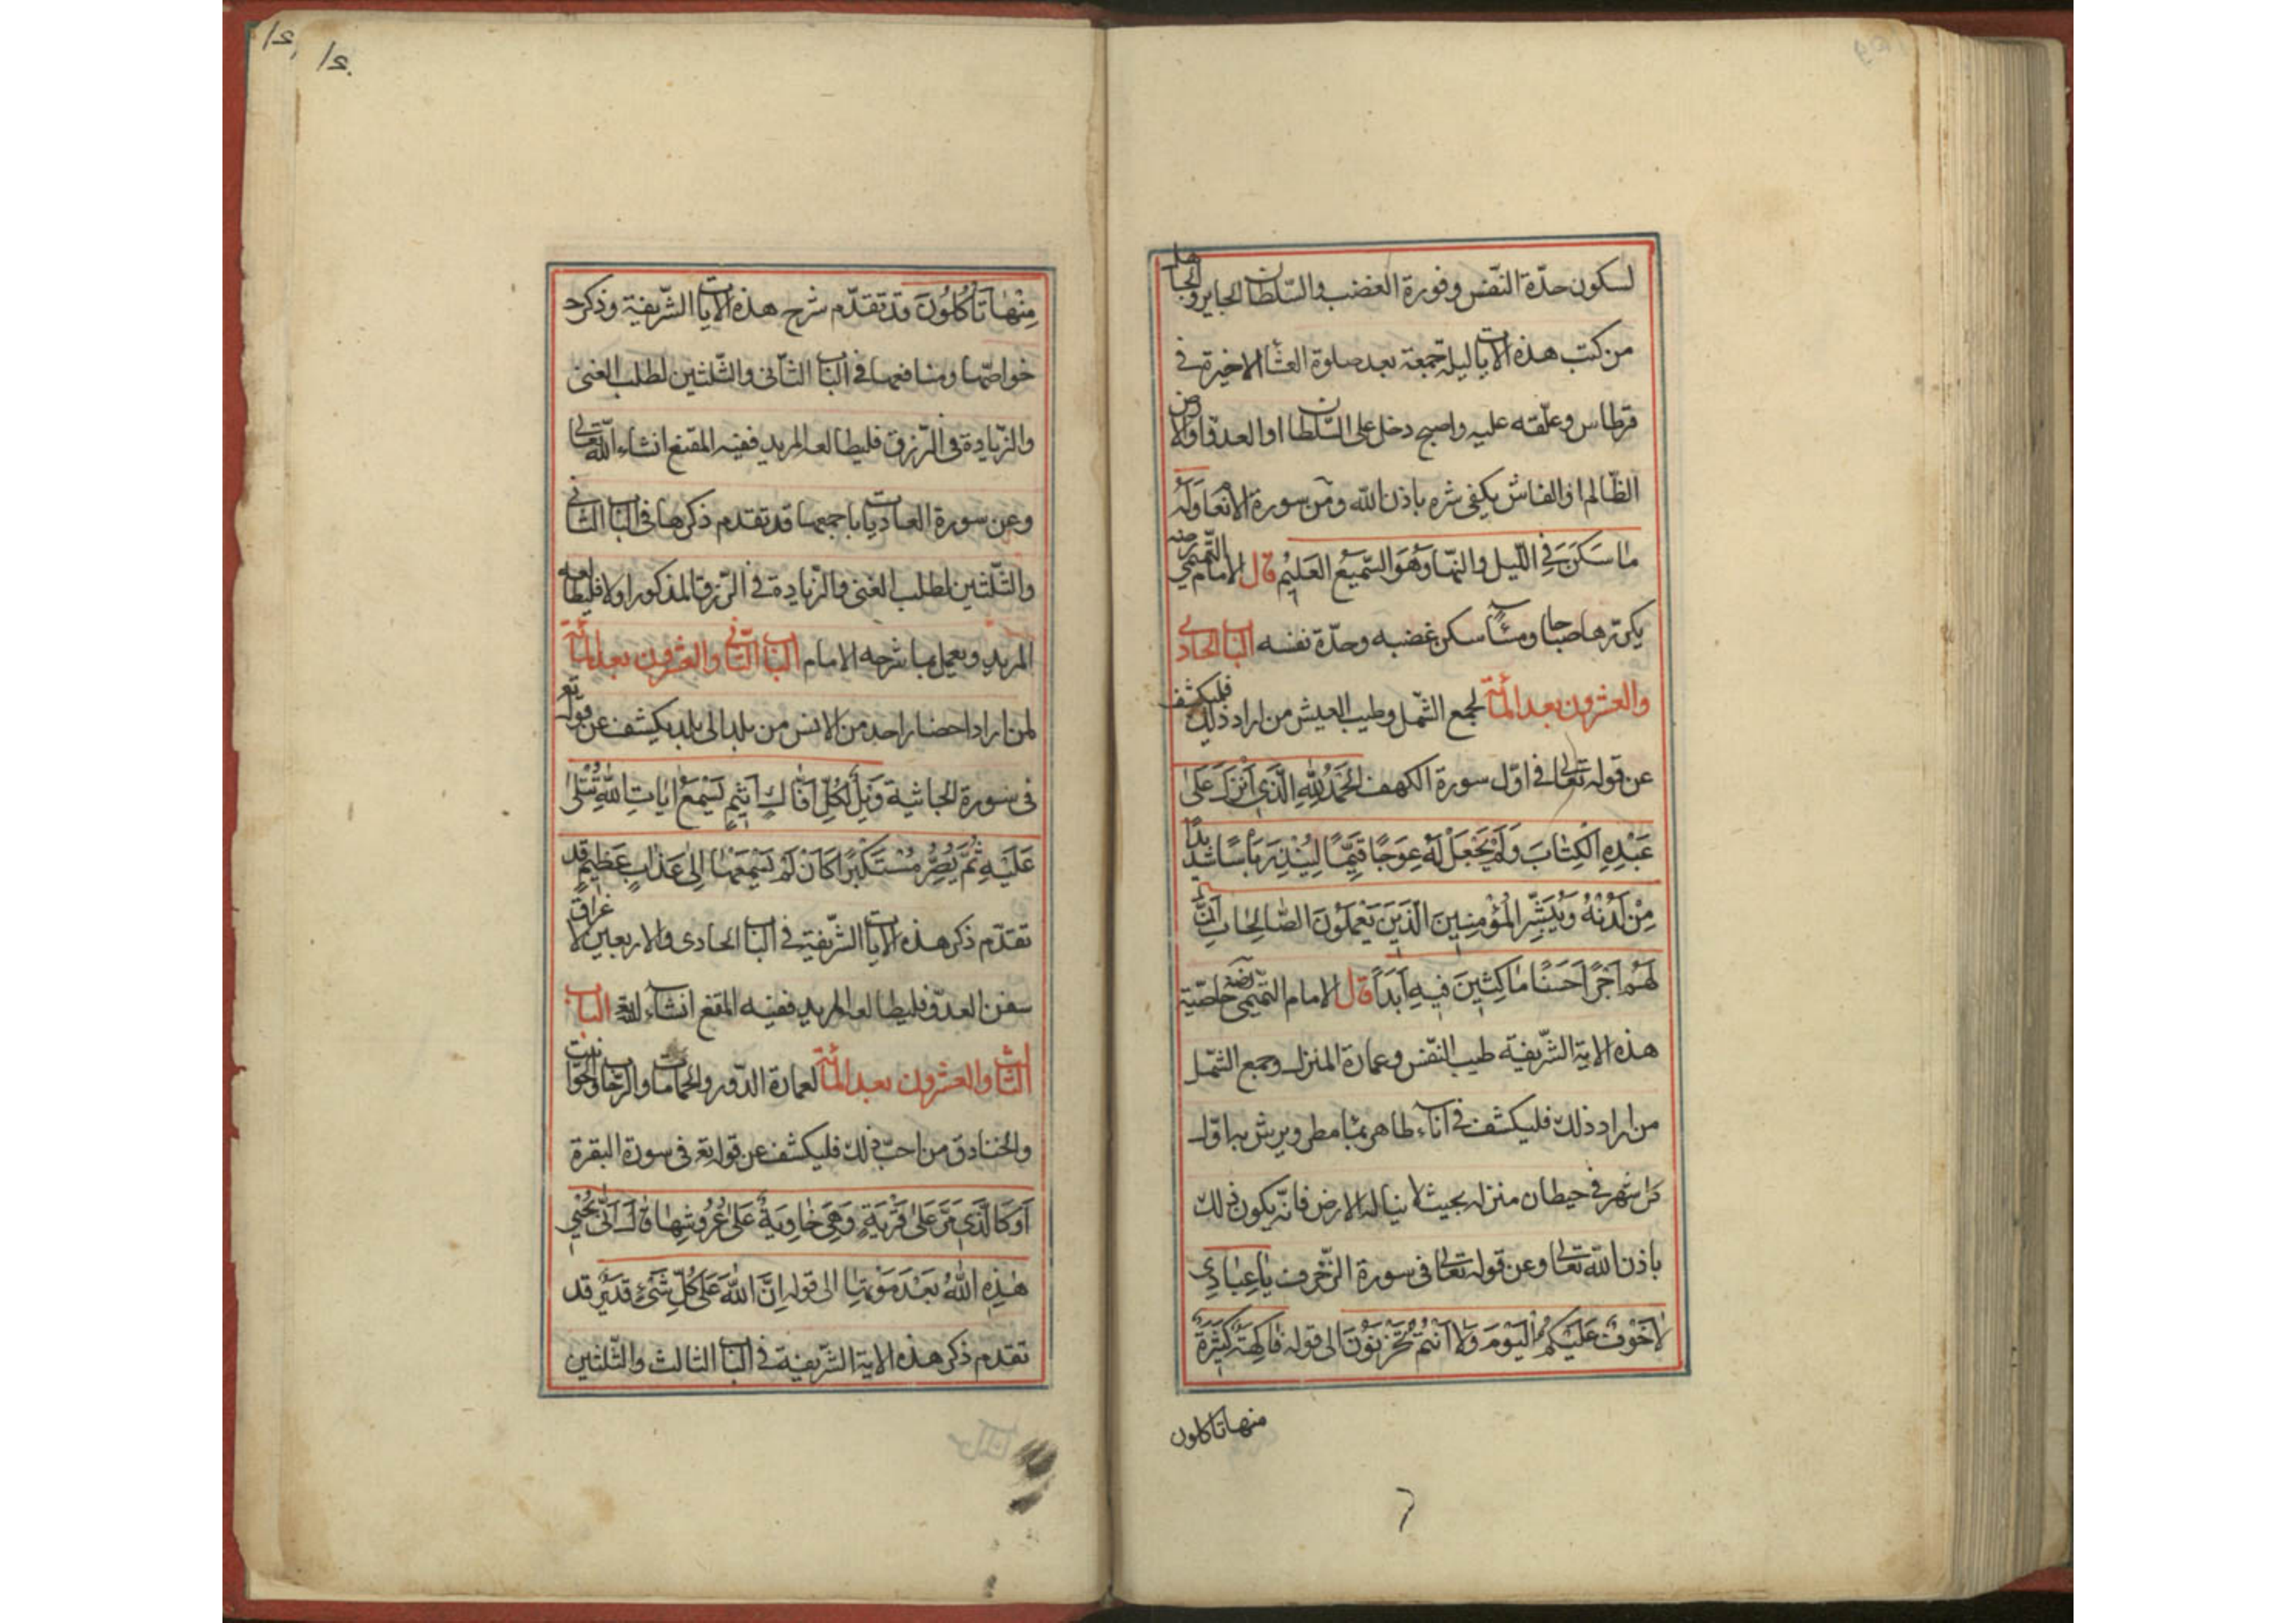 لسكون حدّة النّفس وفورة الغضب والسّلطان الجاير والجاهل
من كتب هذه الايات ليلة جمعة بعد صلوة العشا الاخيرة في
قرطاس وعلّقه عليه واصبح دخل على السّلطان او العدوّ او
الظّالم او الفاش يكفى شره باذن الله ومن سورة الانعام وَلَهُ
مٰا سَكَنَ فِي اللّيل والنّهار وَهُوَ السّمِيعُ العَلِيمُ قال الامام التّميمي
يكرّرها صباحا ومسآء سكن غضبه وحدّة نفسه الباب الحادى
والعشرون بعد المائة لجمع الشّمل وطيب العيش من اراد ذلك فليكشف
عن قوله تعالى في اوّل سورة الكهف اَلحَمْدُ لِلّٰهِ الَّذِي اَنْزَلَ عَلىٰ
عَبْدِهِ الْكِتٰابَ وَلَمْ يَجْعَلْ لَهُ عِوَجًا قَيِّمًا لِيُنْذِرَ بَاْسًا شَدِيدًا
مِنْ لَدُنْهُ وَيُبَشِّرَ الْمُؤْمِنِينَ الَّذِينَ يَعْمَلُونَ الصّٰالِحٰاتِ اَنَّ
لَهُمْ اَجْرًا حَسَنًا مٰاكِثِينَ فِيهِ اَبَدًا قال الامام التّميمى خاصّية
هذه الاية الشّريفة طيب النّفس وعمارة المنزل وجمع الشّمل
من اراد ذلك فليكشف في انآء طاهر بمآ مطر ويرش به اوّل
كل شهر في حيطان منزله بحيث لا يناله الارض فانّه يكون ذلك
باذن الله تعالى وعن قوله تعالى فى سورة الزّخرف يٰا عِبٰادِي
لٰا خَوْفٌ عَلَيْكُمُ الْيَوْمَ وَلٰا اَنْتُمْ تَحْزَنُونَ الى قوله فٰاكِهَةٌ كَثِيرَةٌ
منها تاكلون
مِنْهٰا تَاْكُلُونَ قد تقدّم شرح هذه الايات الشّريفة وذكر
خواصّها ومنافعها في الباب الثّانى والثّلثين لطلب الغنى
والزّيادة فى الرّزق فليطالعه المريد ففيه المقنع انشاء الله تعالى
وعن سورة العاديات باجمعها قد تقدم ذكرها فى الباب الثّانى
والثّلثين لطلب الغنى والزّيادة في الرّزق المذكور اولا فليطالعه
المريد ويعمل بما شرحه الامام الباب الثّانى والعشرون بعد المائة
لمن اراد احضار احد من الانس من بلد الى بلد يكشف عن قوله تع
فى سورة الجاثية وَيْلٌ لِكُلِّ اَفّٰاكٍ اَثِيمٍ يَسْمَعُ اٰيٰاتِ اللّٰهِ تُتْلىٰ
عَلَيْهِ ثُمَّ يُصِرُّ مُسْتَكْبِرًا كَاَنْ لَمْ يَسْمَعْهٰا اِلىٰ عَذٰابٍ عَظِيمٍ قد
تقدّم ذكر هذه الايات الشّريفة في الباب الحادى والاربعين لاغراق
سفن العدوّ فليطالعه المريد ففيه المقنع انشآء الله الباب
الثالث والعشرون بعد المائة لعمارة الدّور والحمامات والرّحاب والحوانيت
والخنادق من احبّ ذلك فليكشف عن قوله تع فى سورة البقرة
اَوْ كَالَّذِي مَرَّ عَلىٰ قَرْيَةٍ وَهِيَ خٰاوِيَةٌ عَلىٰ عُرُوشِهٰا قٰالَ اَنّىٰ يُحْيِي
هٰذِهِ اللّٰهُ بَعْدَ مَوْتِهٰا الى قوله اِنَّ اللّٰهَ عَلىٰ كُلِّ شَيْءٍ قَدِيرٌ قد
تقدم ذكر هذه الاية الشّريفة في الباب الثالث والثّلثين